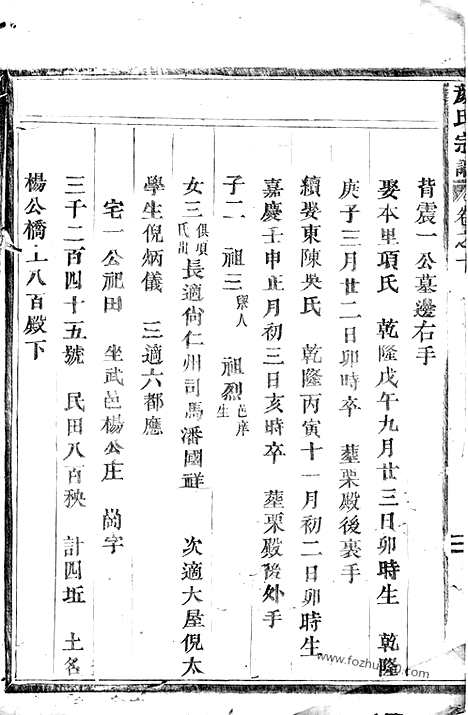 氏宗譜 卷之十
背震一公墓邊右手
娶本里項氏 乾隆戊午九月廿三日卯時生 乾隆
庚子三月廿二日卯時卒 塟栗殿後裏手
續娶東陳吳氏 乾隆丙寅十一月初二日卯時生
嘉慶壬申正月初三日亥時卒 塟栗殿後外手
子二 祖三 與人 祖烈 邑庠生
女三 俱項氏出 長適尙仁州司馬潘國祥 次適大屋倪太
學生倪炳儀 三適六都應
宅一公祀田 坐武邑楊公庄 尙字
三千二百四十五號 民田八百秧 計四坵 土名
楊公橋上八百殿下
www.fozhu920.com